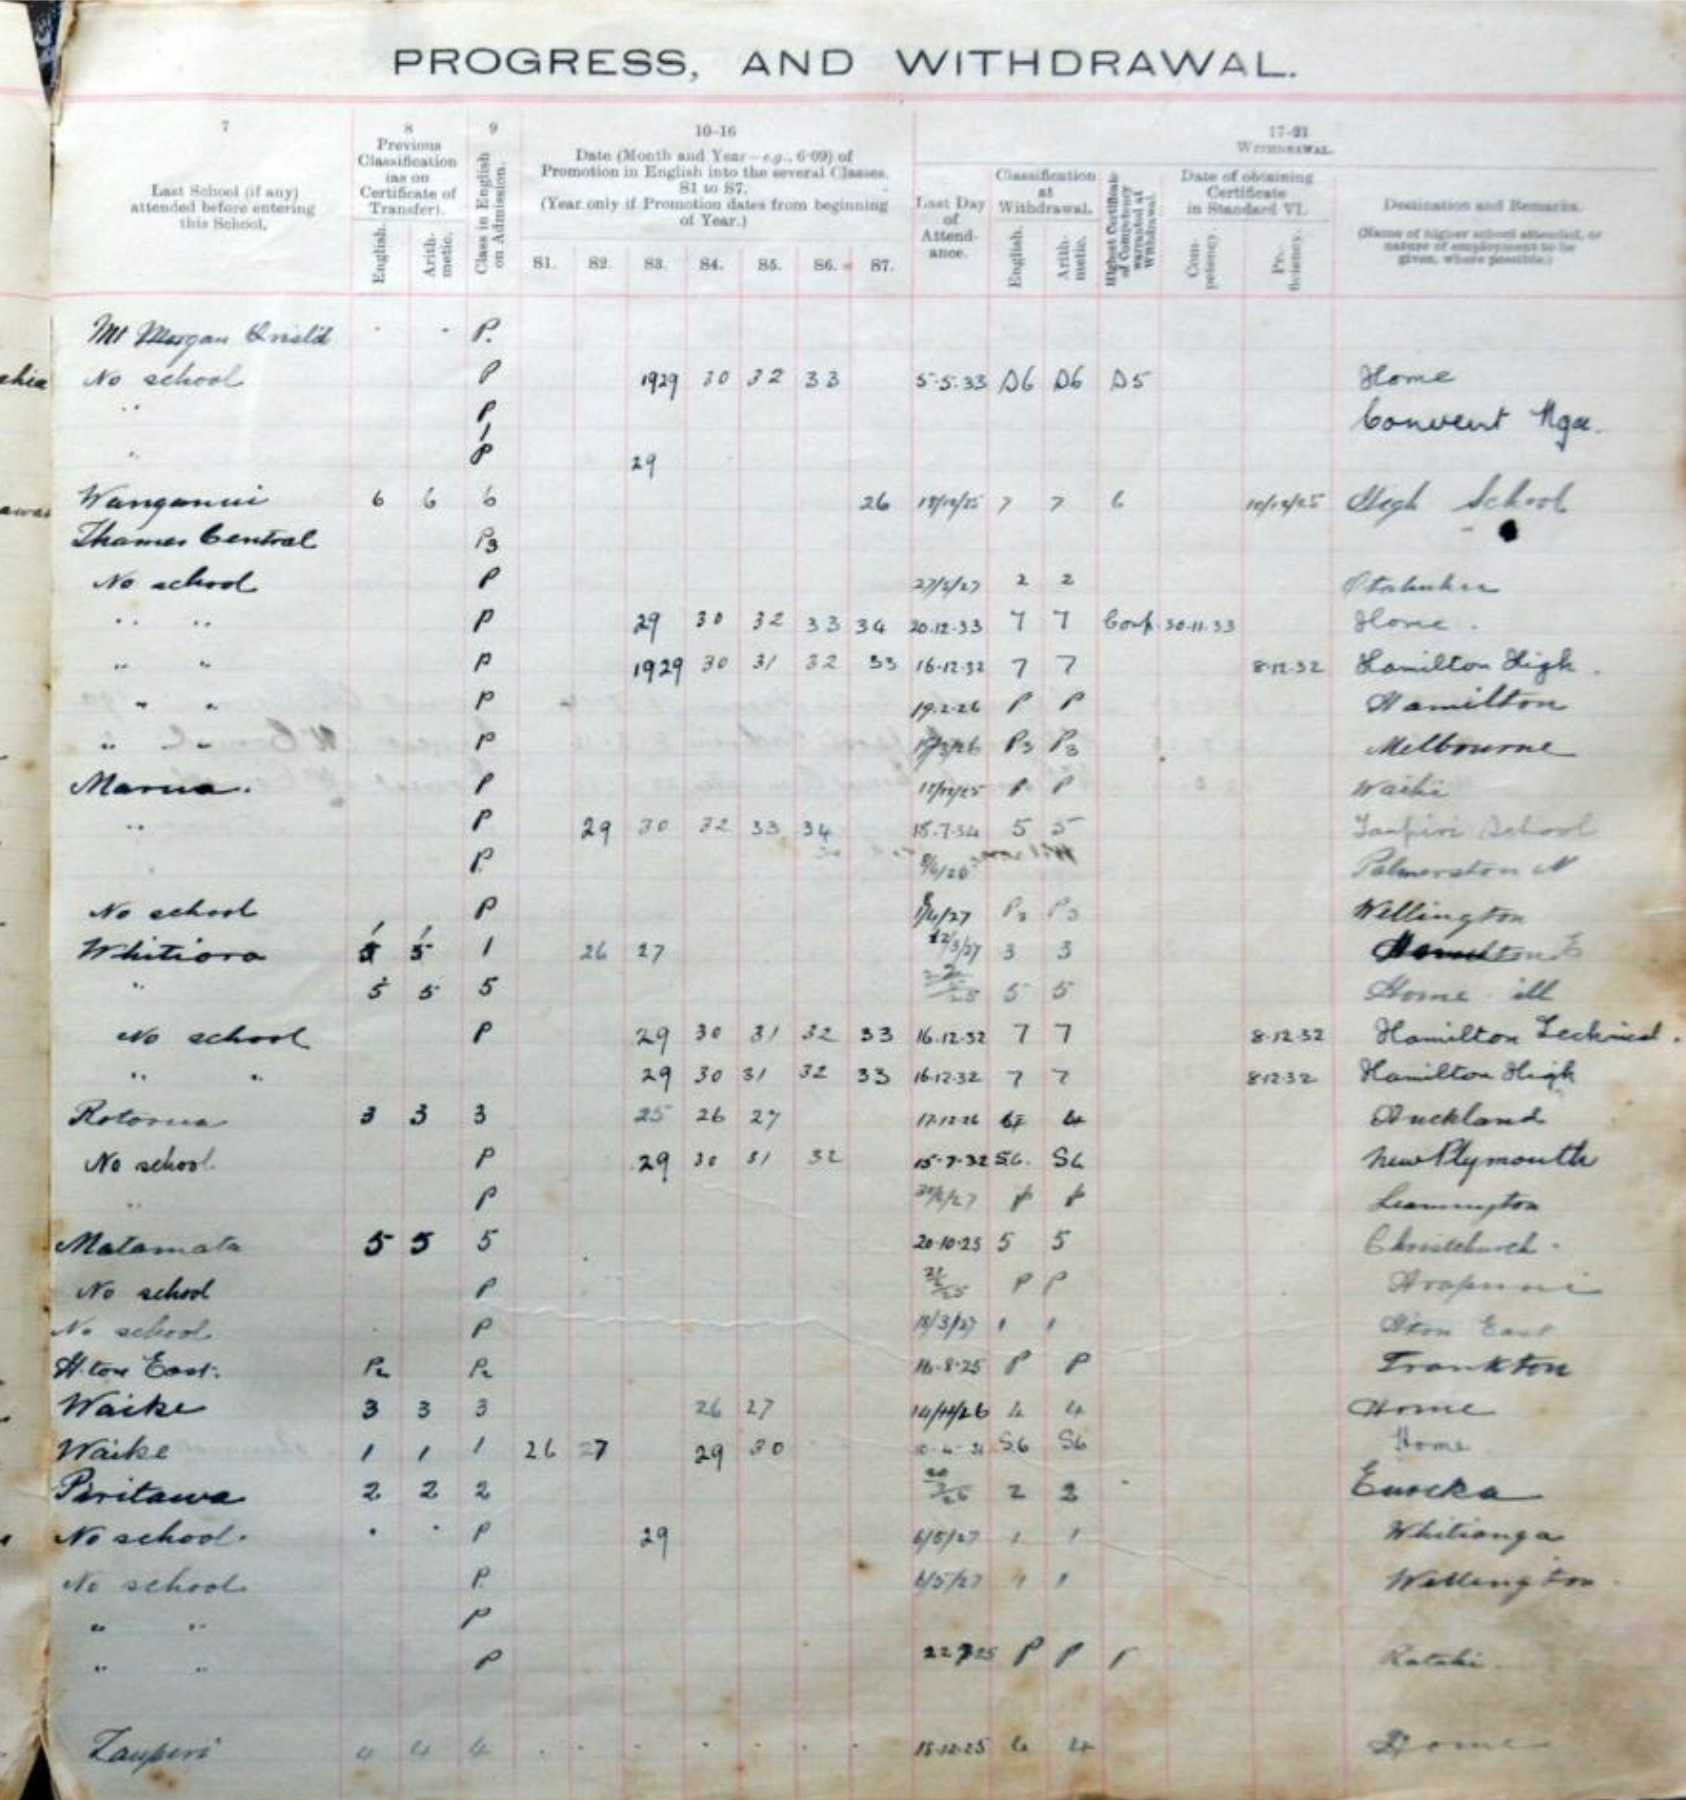 PROGRESS, AND WITHDRAWAL.
7 8 9 10-16 17-21
Last School (if any) attended before entering this School.
Previous Classification (as on Certificate of Transfer).
English. Arithmetic.
Class in English on Admission.
Date (Month and Year—e.g., 6-09) of Promotion in English into the several Classes, S1 to S7.
(Year only if Promotion dates from beginning of Year.)
S1. S2. S3. S4. S5. S6. S7.
WITHDRAWAL.
Last Day of Attendance.
Classification at Withdrawal.
English. Arithmetic.
Highest Certificate of Competency warranted at Withdrawal.
Date of obtaining Certificate in Standard VI.
Competency. Proficiency.
Destination and Remarks.
(Name of higher school attended, or nature of employment to be given, where possible.)
Mt Morgan P.
No school P 1929 30 32 33 5.5.33 D6 D6 D5 Home
" P Convent Nga.
" P 29
Wanganui 6 6 6 26 7 7 6 High School
Thames Central P3
No school P 27/5/27 2 2
" " P 29 30 32 33 34 20.12.33 7 7 Comp. 30.11.33 Home.
" " P 1929 30 31 32 33 16.12.32 7 7 8.12.32 Hamilton High.
" " P 19.2.26 P P Hamilton
" " P P3 P3 Melbourne
Marua. P P P Waihi
" P 29 30 32 33 34 18.7.34 5 5 Taupiri School
" P. Palmerston N
No school P P3 P3 Wellington
Whitiora 1 26 27 3 3
" 5 5 5 5 5 Home ill
No school P 29 30 31 32 33 16.12.32 7 7 8.12.32 Hamilton Technical.
" " 29 30 31 32 33 16.12.32 7 7 8.12.32 Hamilton High
Rotorua 3 3 3 25 26 27 17.12.26 4 Auckland
No school P 29 30 31 32 15.7.32 S6. S6 New Plymouth
" P P P Leamington
Matamata 5 5 5 20.10.25 5 5 Christchurch.
No school P P P Arapuni
No school P 18/3/27 1 1 Hton East
H.ton East. P2 P2 16.8.25 P P Frankton
Waike 3 3 3 26 27 14/11/26 4 4 Home
Waike 1 1 1 26 27 29 30 S6 S6 Home
Piritawa 2 2 2 2 2 Eureka
No school. P 29 6/5/27 1 1 Whitianga
No school P 6/5/27 1 1 Wellington.
" " P
" " P P P Ratahi.
Taupiri 4 4 4 18.12.25 4 4 Home